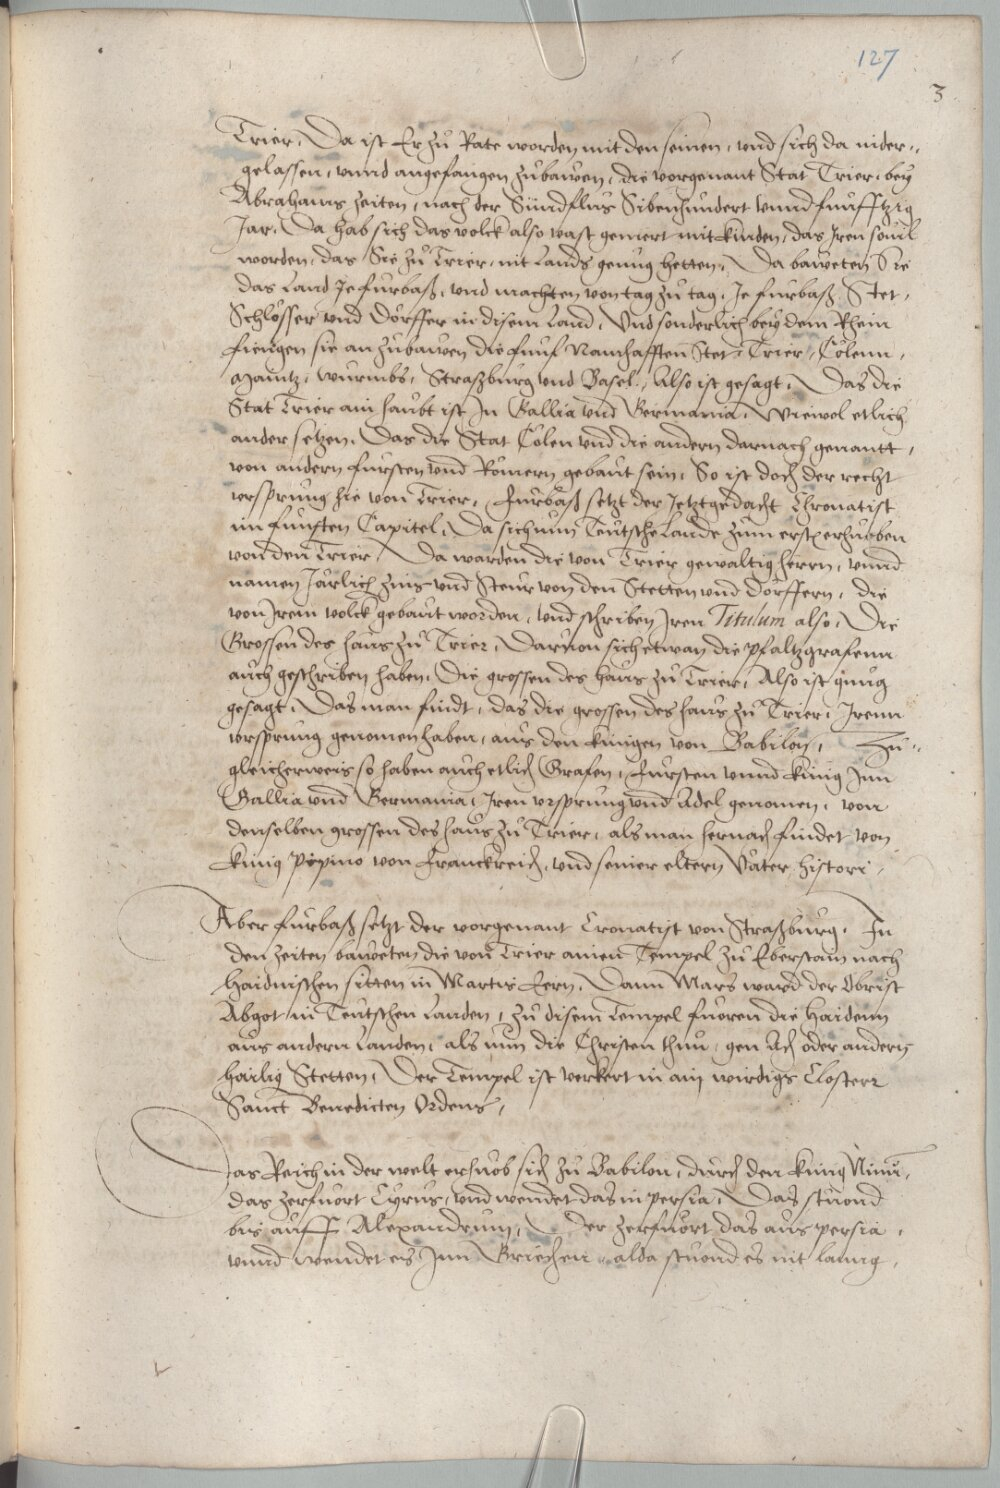 127
3
Trier. Da ist Er zu Rate worden mit den seinen, und sich da nider-
gelassen, unnd angefangen zubawen, die vorgenant Stat Trier, bey
Abrahams zeiten, nach der Sündflus Sibenhundert unnd funfftzig
Jar. Da hab sich das volck also vast gemert mit kinden, das Iren souil
worden, das Sie zu Trier, nit Lands genug hetten. Da baweten Sie
das Land Je furbaß, und machten von tag zu tag, Je furbaß Stet,
Schlösser und Dörffer in disem Land, Und sonderlich bey dem Rhein
fiengen sie an zubawen die funf Namhafften Stet, Trier, Cölenn,
Maintz, wurmbs, Straßburg und Basel. Also ist gesagt. Das die
Stat Trier ain haubt ist In Gallia und Germania. Wiewol etlich
ander setzen. Das die Stat Cölen und die andern darnach genantt,
von andern fursten und Römern gebaut sein. So ist doch der recht
ursprung hie von Trier. Furbaß setzt der Jetztgedacht Chronatist
im funften Capitel. Da sich nun Teutsche Lande zum ersten erhuoben
von den Trier. Da warden die von Trier gewaltig herrn, unnd
namen Järlich zins und Steur von den Stetten und dörffern, die
von Irem volck gebaut worden, und schriben Iren Titulum also. Die
Grossen des haus zu Trier. Daruon sich etwan die pfaltzgrafenn
auch geschriben haben. Die grossen des haus zu Trier. Also ist gnug
gesagt. Das man findt, das die grossen des haus zu Trier, Irenn
ursprung genomen haben, aus den künigen von Babilon. Zu-
gleicherweis so haben auch etlich Grafen, fursten unnd künig Inn
Gallia und Germania, Iren ursprung und Adel genomen, von
denselben grossen des haus zu Trier, als man hernach findet von
künig pipino von Franckreich, und seiner eltern Väter histori.
Aber furbaß setzt der vorgenant Cronatist von Straßburg. In
den zeiten baweten die von Trier ainen Tempel zu Eberstain nach
haidnischen sitten in Martis Eern. Dann Mars ward der Obrist
Abgot in Teutschen Landen, zu disem Tempel fuoren die haidenn
aus andern Landen, als nun die Christen thun, gen Ach oder andern
hailig Stetten. Der Tempel ist verkert in ain wirdigs Closterr
Sanct Benedicten Ordens.
Das Reich in der welt erhuob sich zu Babilon, durch den künig Ninu,
das zerfuort Cyrus, und wendet das in persia. Das stuond
bis auff Alexandrum. Der zerfuort das aus persia,
unnd wendet es Inn Griechen, alda stuond es nit lanng,